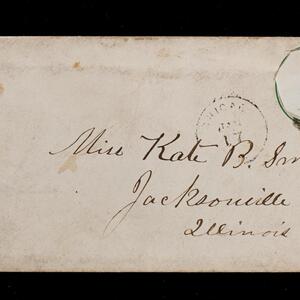 17
Miss Kate B. Sm
Jacksonville
Illinois